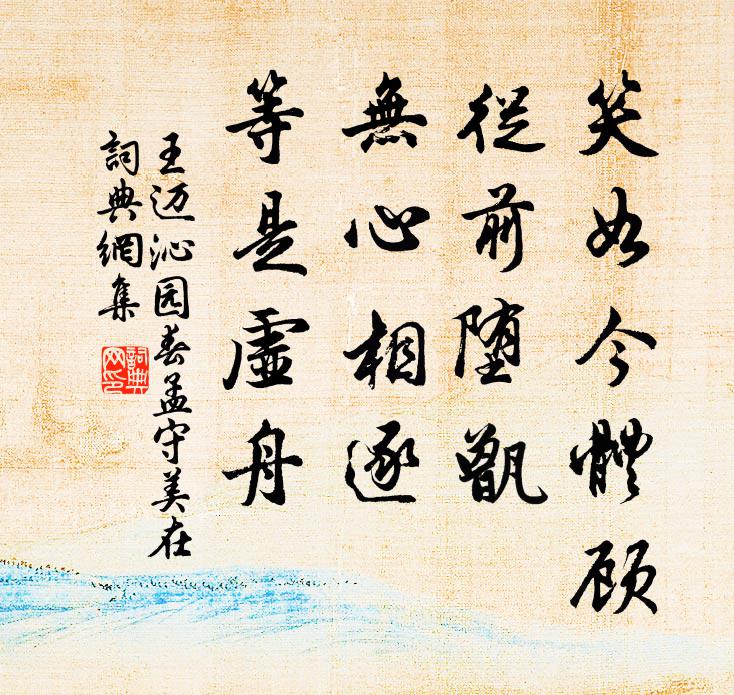 笑如今體顾
從前堕甑
無心相逐
等是虛舟
王迈沁园春孟守美在
詞典網集
詞典網印